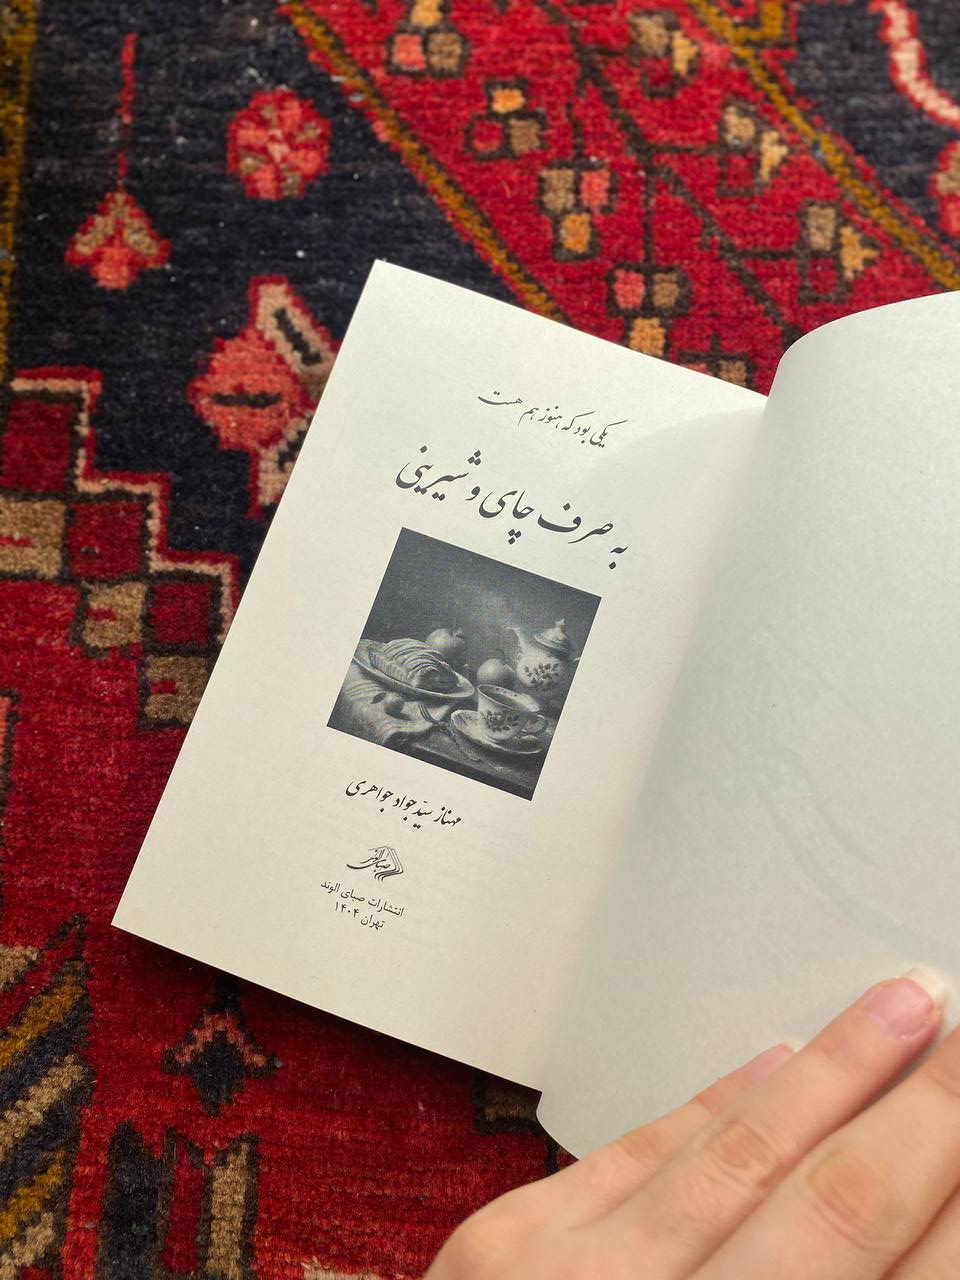 یکی بود که هنوز هم هست
به صرف چای و شیرینی
مهناز سیّد جواد جواهری
صبای الوند
انتشارات صبای الوند
تهران ۱۴۰۴